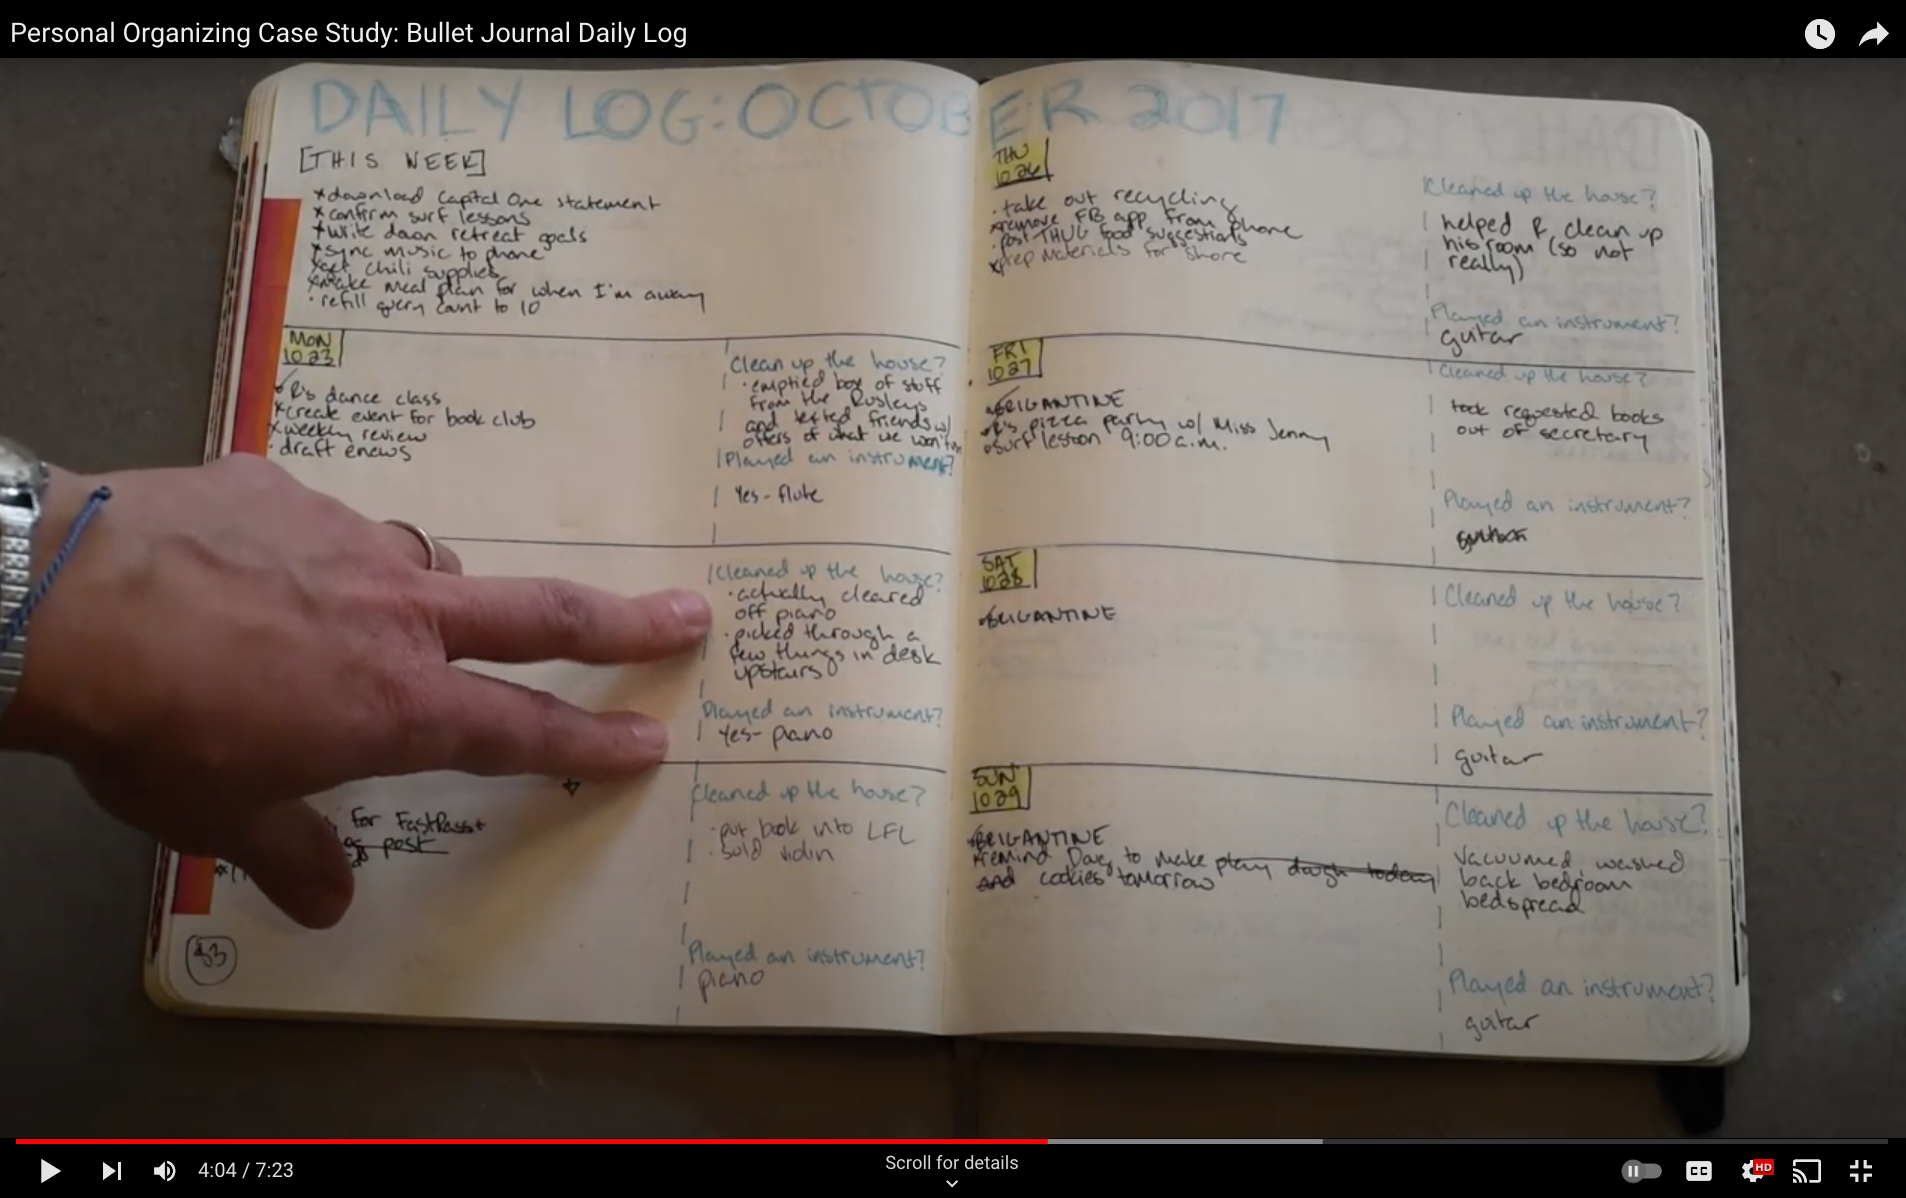 Personal Organizing Case Study: Bullet Journal Daily Log
DAILY LOG: OCTOBER 2017
[THIS WEEK]
x download Capital One statement
x confirm surf lessons
x write down retreat goals
x sync music to phone
x get chili supplies
x make meal plan for when I'm away
· refill query count to 10
MON
10 23
R's dance class
x create event for book club
x weekly review
· draft enews
Clean up the house?
· emptied box of stuff
from the Rusleys
and texted friends w/
offers of what we won't
Played an instrument?
Yes - flute
Cleaned up the house?
· actually cleared
off piano
· picked through a
few things in desk
upstairs
Played an instrument?
Yes - piano
for FastPass+
post
Cleaned up the house?
· put book into LFL
· sold violin
Played an instrument?
piano
33
THU
10 26
· take out recycling
x remove FB app from phone
· post THUG food suggestions
x prep materials for Shore
Cleaned up the house?
helped R clean up
his room (so not
really)
Played an instrument?
guitar
FRI
10 27
BRIGANTINE
R's pizza party w/ Miss Jenny
surf lesson 9:00 a.m.
Cleaned up the house?
took requested books
out of secretary
Played an instrument?
SAT
10 28
BRIGANTINE
Cleaned up the house?
Played an instrument?
guitar
SUN
10 29
BRIGANTINE
x remind Dave to make play dough today
and cookies tomorrow
Cleaned up the house?
Vacuumed, washed
back bedroom
bedspread
Played an instrument?
guitar
4:04 / 7:23
Scroll for details
CC
HD